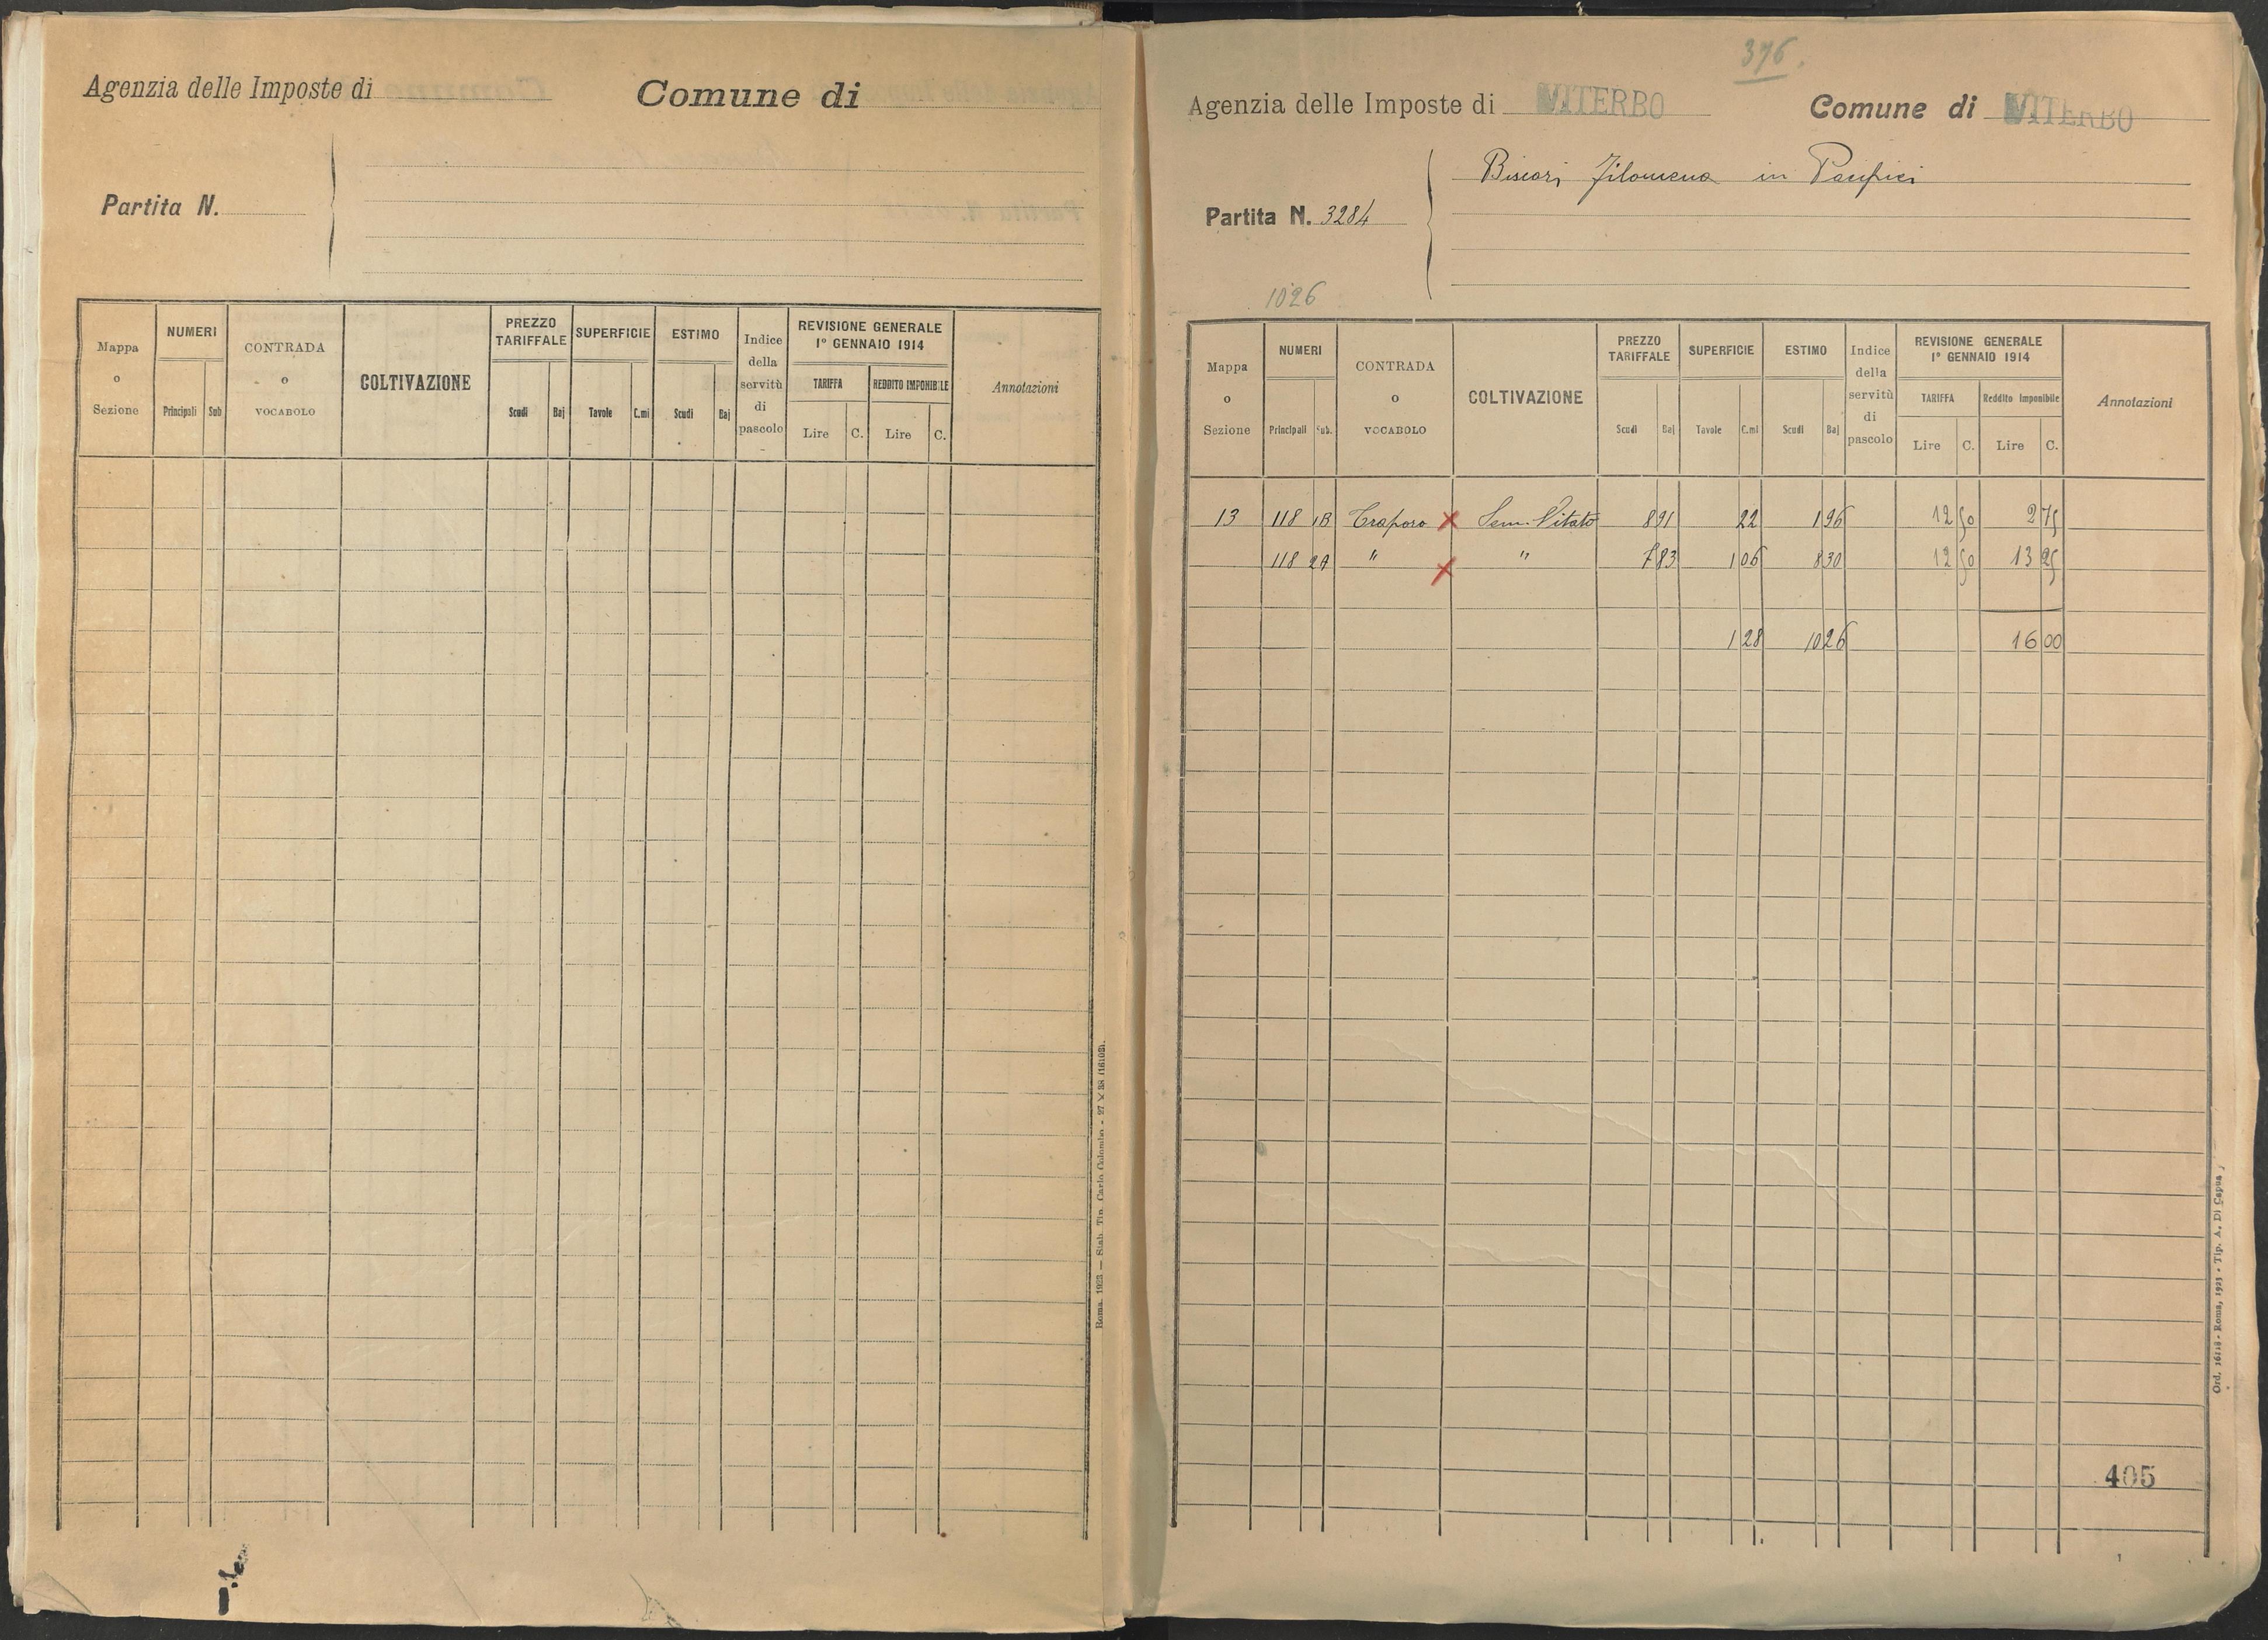 Agenzia delle Imposte di Comune di
Partita N.
Mappa o Sezione NUMERI CONTRADA o VOCABOLO COLTIVAZIONE PREZZO TARIFFALE SUPERFICIE ESTIMO Indice della servitù di pascolo REVISIONE GENERALE 1° GENNAIO 1914 Annotazioni
TARIFFA REDDITO IMPONIBILE
Principali Sub Scudi Baj Tavole C.mi Scudi Baj Lire C. Lire C.
Roma, 1923 — Stab. Tip. Carlo Colombo - 27 X 38 (16102).
376.
Agenzia delle Imposte di VITERBO Comune di VITERBO
Biscari Filomena in Pacifici
Partita N. 3284
1026
Mappa o Sezione NUMERI CONTRADA o VOCABOLO COLTIVAZIONE PREZZO TARIFFALE SUPERFICIE ESTIMO Indice della servitù di pascolo REVISIONE GENERALE 1° GENNAIO 1914 Annotazioni
TARIFFA Reddito Imponibile
Principali Sub. Scudi Baj Tavole C.mi Scudi Baj Lire C. Lire C.
13 118 1B Traporo x Sem. Vitato 8 91 22 1 96 12 50 2 75
118 2A " x " 7 83 1 06 8 30 12 50 13 25
1 28 10 26 16 00
405
Ord. 16118 - Roma, 1923 - Tip. A. Di Capua